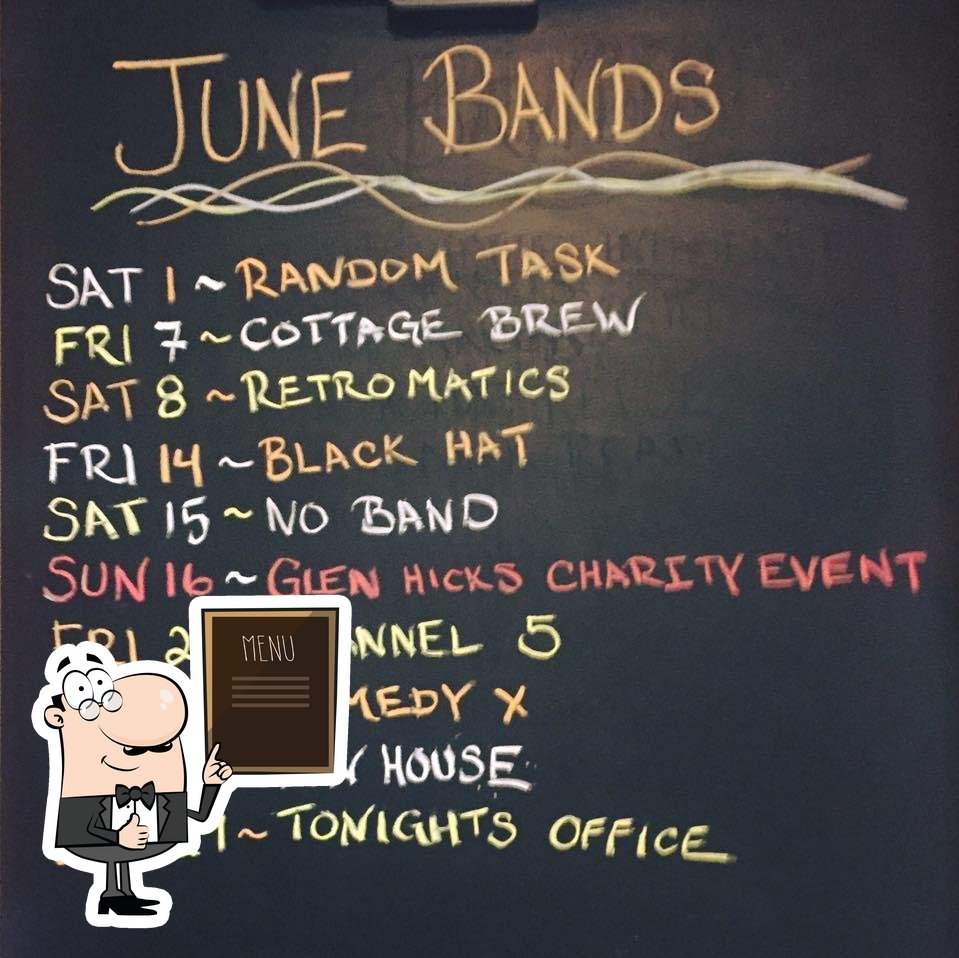 JUNE BANDS
SAT 1 ~ RANDOM TASK
FRI 7 ~ COTTAGE BREW
SAT 8 ~ RETROMATICS
FRI 14 ~ BLACK HAT
SAT 15 ~ NO BAND
SUN 16 ~ GLEN HICKS CHARITY EVENT
FRI 5
X
HOUSE
~ TONIGHTS OFFICE
MENU